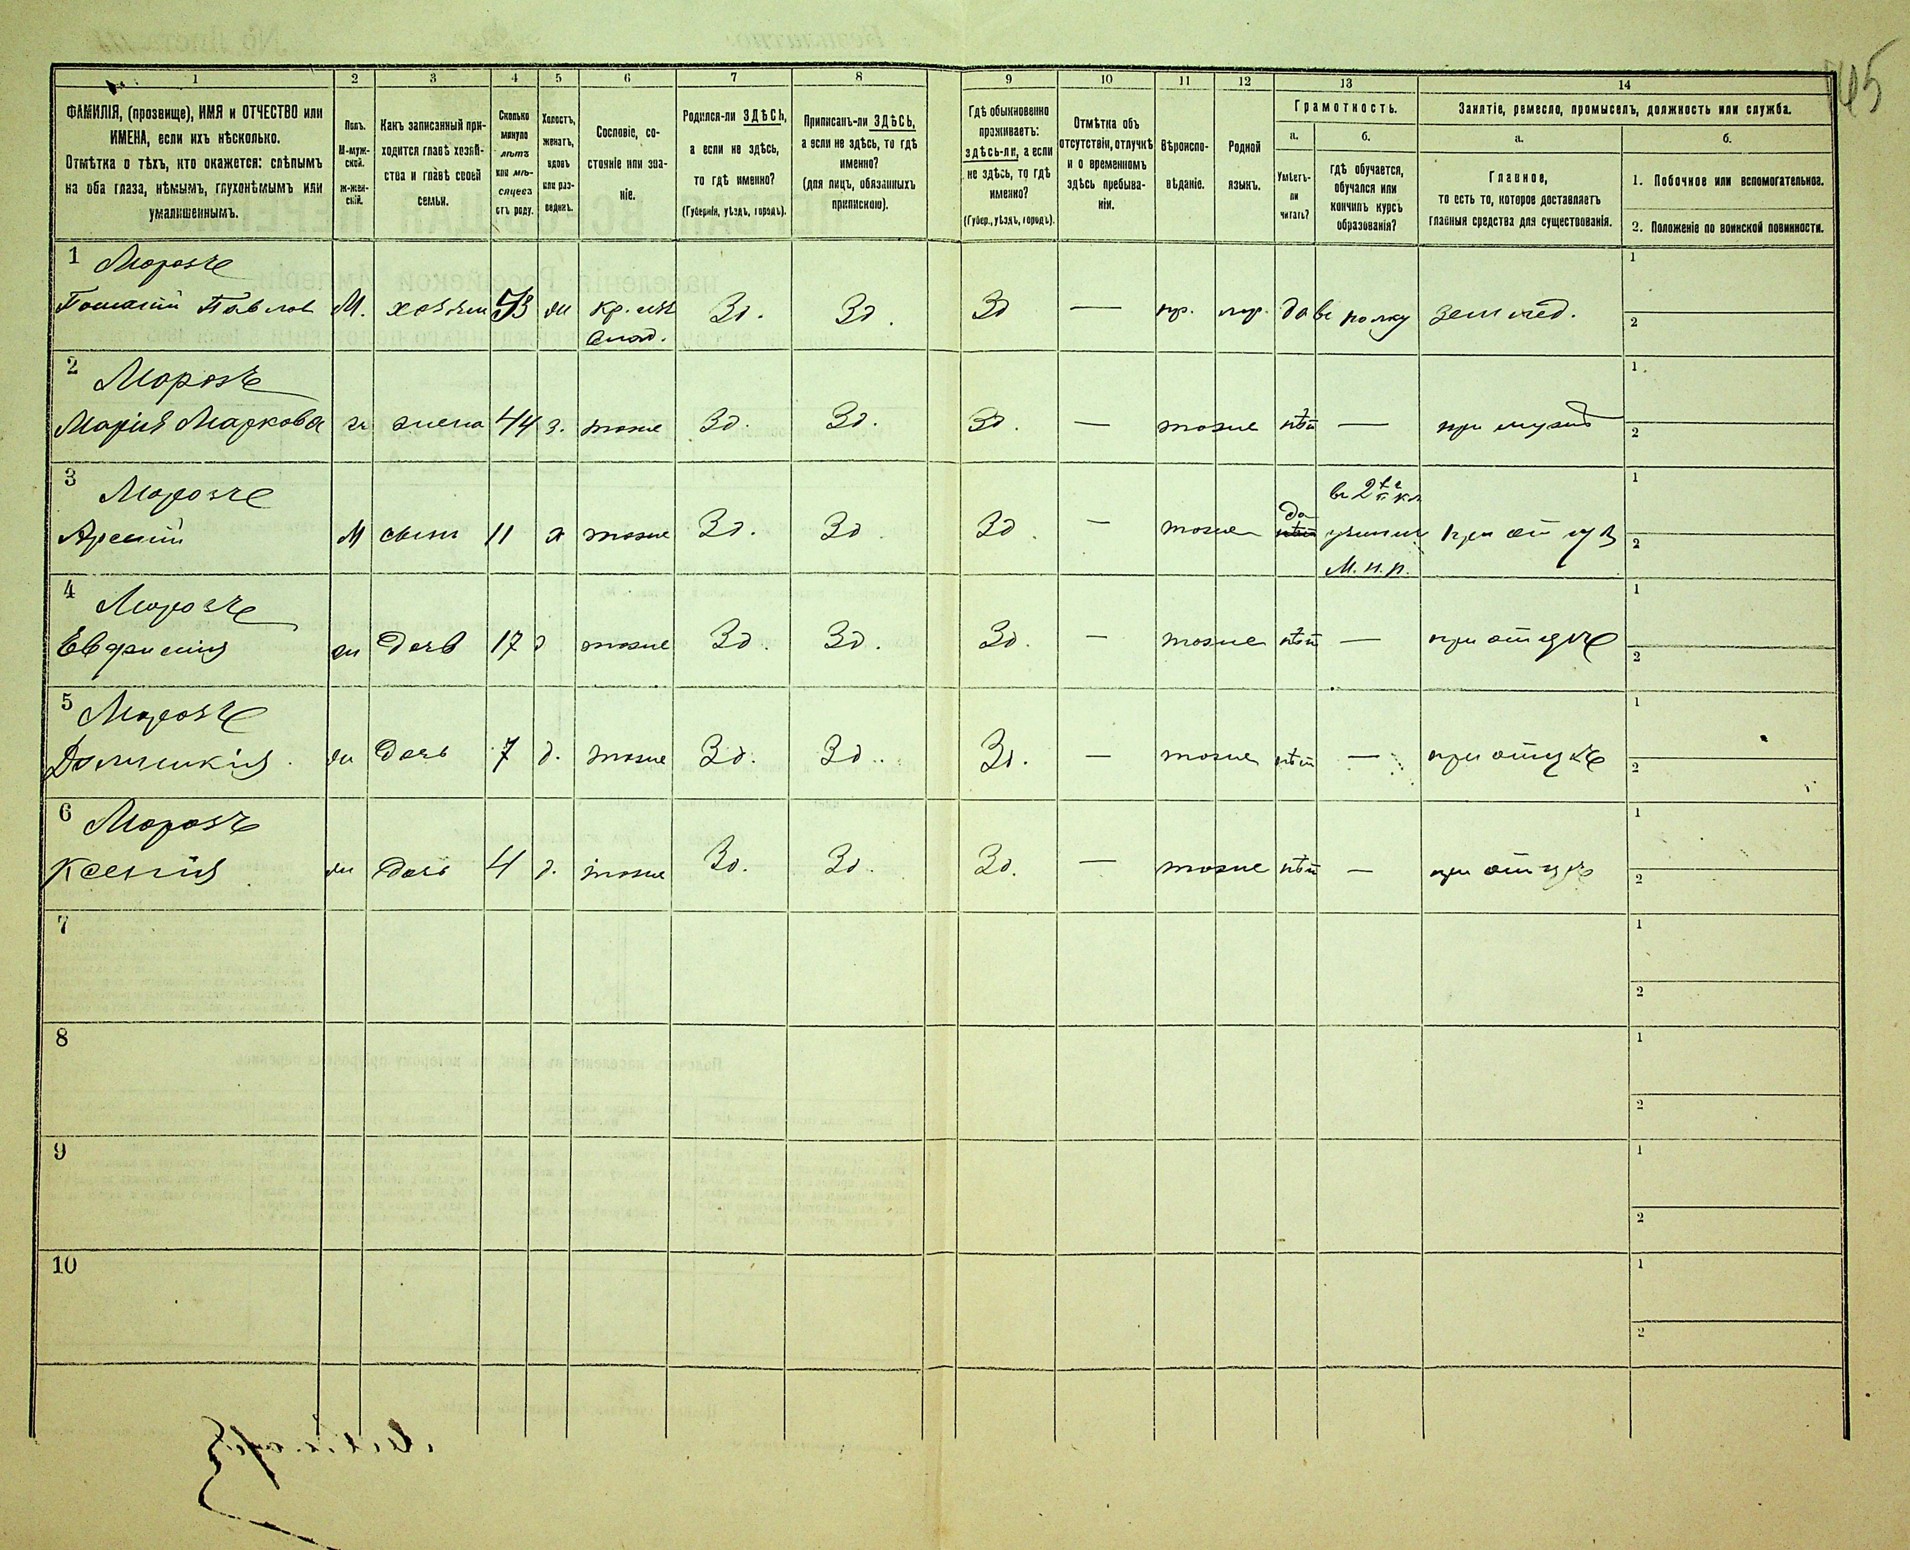 745
1 2 3 4 5 6 7 8 9 10 11 12 13 14
ФАМИЛІЯ, (прозвище), ИМЯ и ОТЧЕСТВО или
ИМЕНА, если ихъ нѣсколько.
Отмѣтка о тѣхъ, кто окажется: слѣпымъ
на оба глаза, нѣмымъ, глухонѣмымъ или
умалишеннымъ.
Полъ.
М-муж-
ской.
Ж-жен-
скій.
Какъ записанный при-
ходится главѣ хозяй-
ства и главѣ своей
семьи.
Сколько
минуло
лѣтъ
или мѣ-
сяцевъ
отъ роду.
Холостъ,
женатъ,
вдовъ
или раз-
веденъ.
Сословіе, со-
стояніе или зва-
ніе.
Родился-ли ЗДѢСЬ,
а если не здѣсь,
то гдѣ именно?
(Губернія, уѣздъ, городъ).
Приписанъ-ли ЗДѢСЬ,
а если не здѣсь, то гдѣ
именно?
(для лицъ, обязанныхъ
припискою).
Гдѣ обыкновенно
проживаетъ:
здѣсь-ли, а если
не здѣсь, то гдѣ
именно?
(Губер., уѣздъ, городъ).
Отмѣтка объ
отсутствіи, отлучкѣ
и о временномъ
здѣсь пребыва-
ніи.
Вѣроиспо-
вѣданіе.
Родной
языкъ.
Грамотность.
а.
Умѣетъ-
ли
читать?
б.
гдѣ обучается,
обучался или
кончилъ курсъ
образованія?
Занятіе, ремесло, промыселъ, должность или служба.
а.
Главное,
то есть то, которое доставляетъ
главныя средства для существованія.
б.
1. Побочное или вспомогательное.
2. Положеніе по воинской повинности.
1 Морозъ
Павлов М. хозяин 53 ж кр. Зд. Зд. Зд — пр. да въ полку землед.
1
2
2 Морозъ
Марія Маркова ж жена 44 з. тоже Зд. Зд. Зд. — тоже нѣт — при мужѣ
1
2
3 Морозъ
Арсеній М сынъ 11 х тоже Зд. Зд Зд. — тоже да нѣт при отцѣ
М. н. п.
1
2
4 Морозъ
Евфимія ж дочь 17 д тоже Зд. Зд. Зд. — тоже нѣт — при отцѣ
1
2
5 Морозъ
Домникія ж дочь 7 д. тоже Зд. Зд. Зд. — тоже нѣт — при отцѣ
1
2
6 Морозъ
Ксенія ж дочь 4 д. тоже Зд. Зд. Зд. — тоже нѣт — при отцѣ
1
2
7
1
2
8
1
2
9
1
2
10
1
2